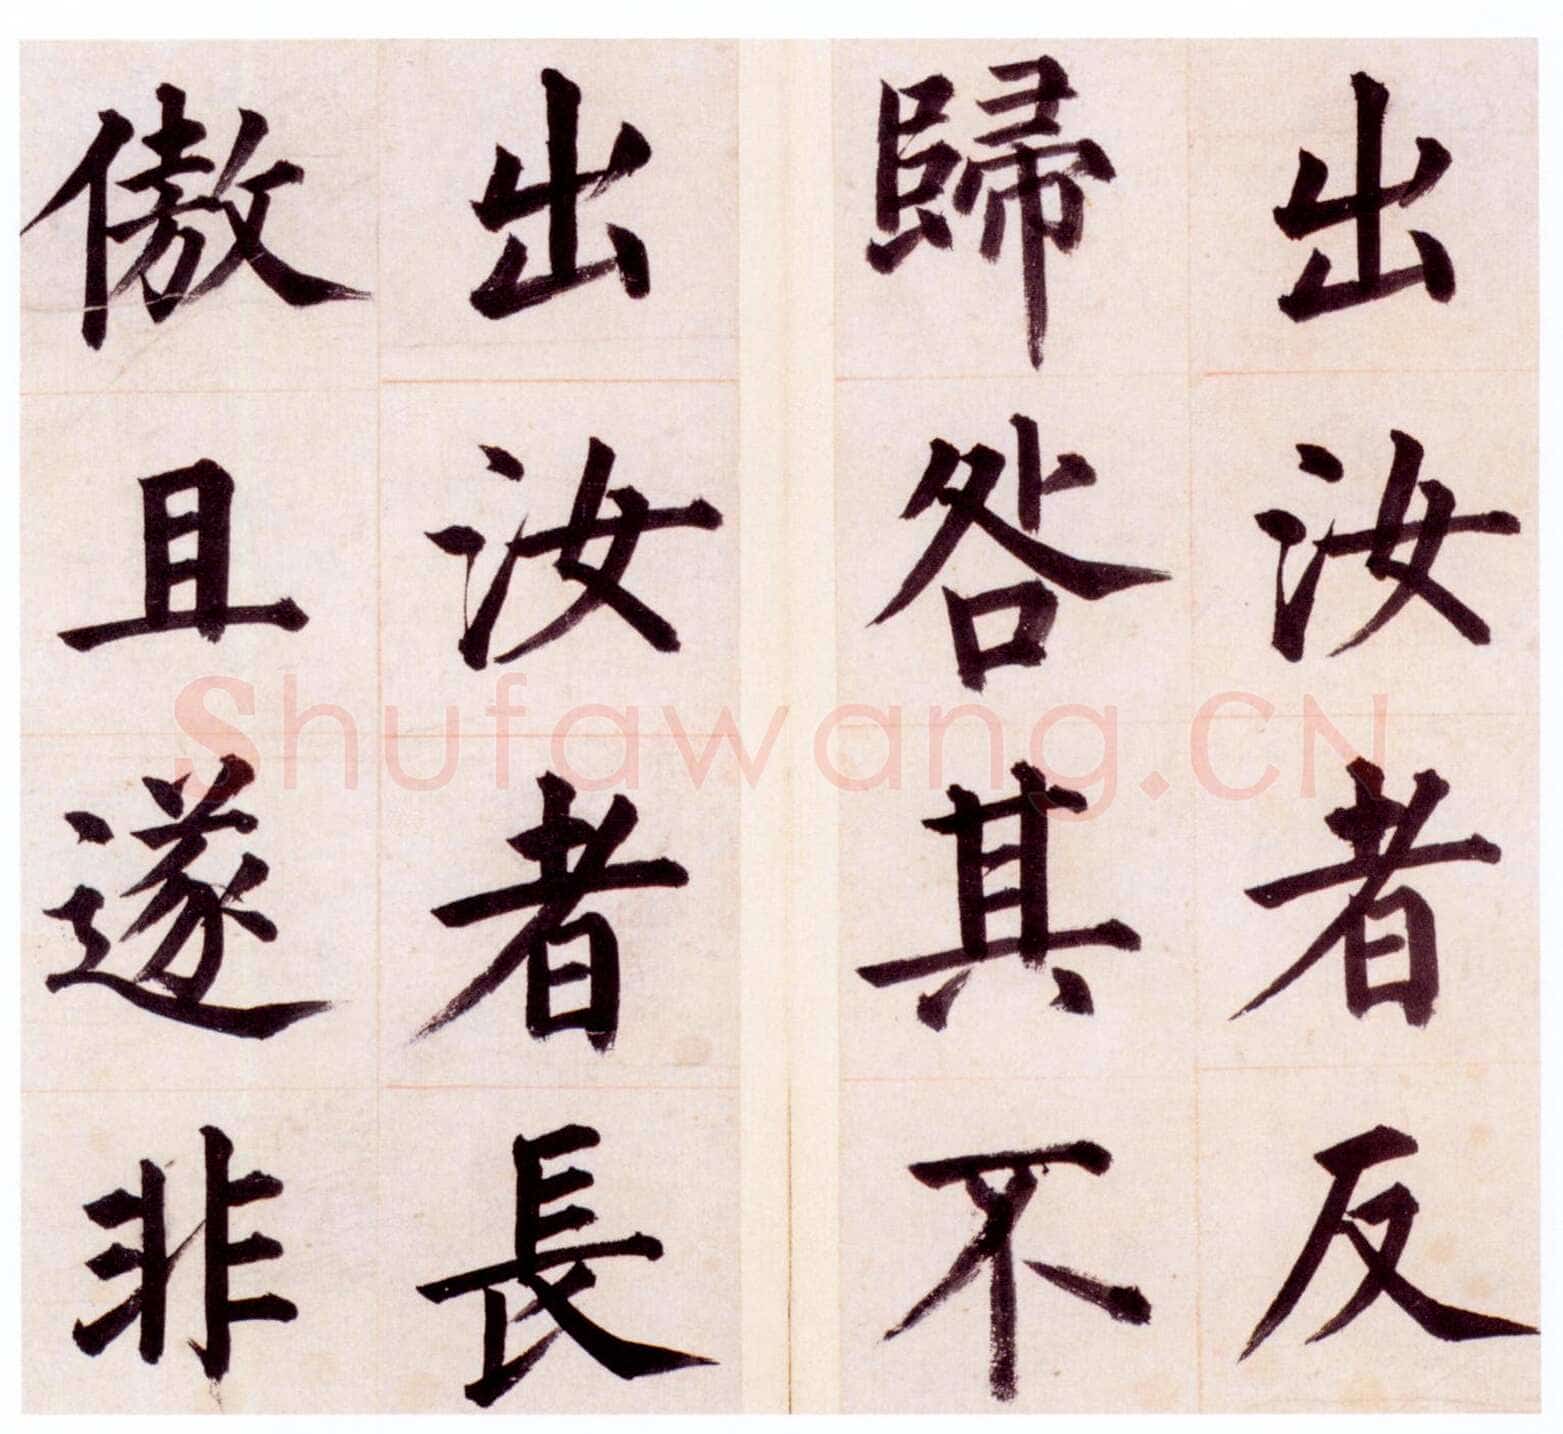 出汝者反
歸咎其不
出汝者長
傲且遂非
Shufawang.CN